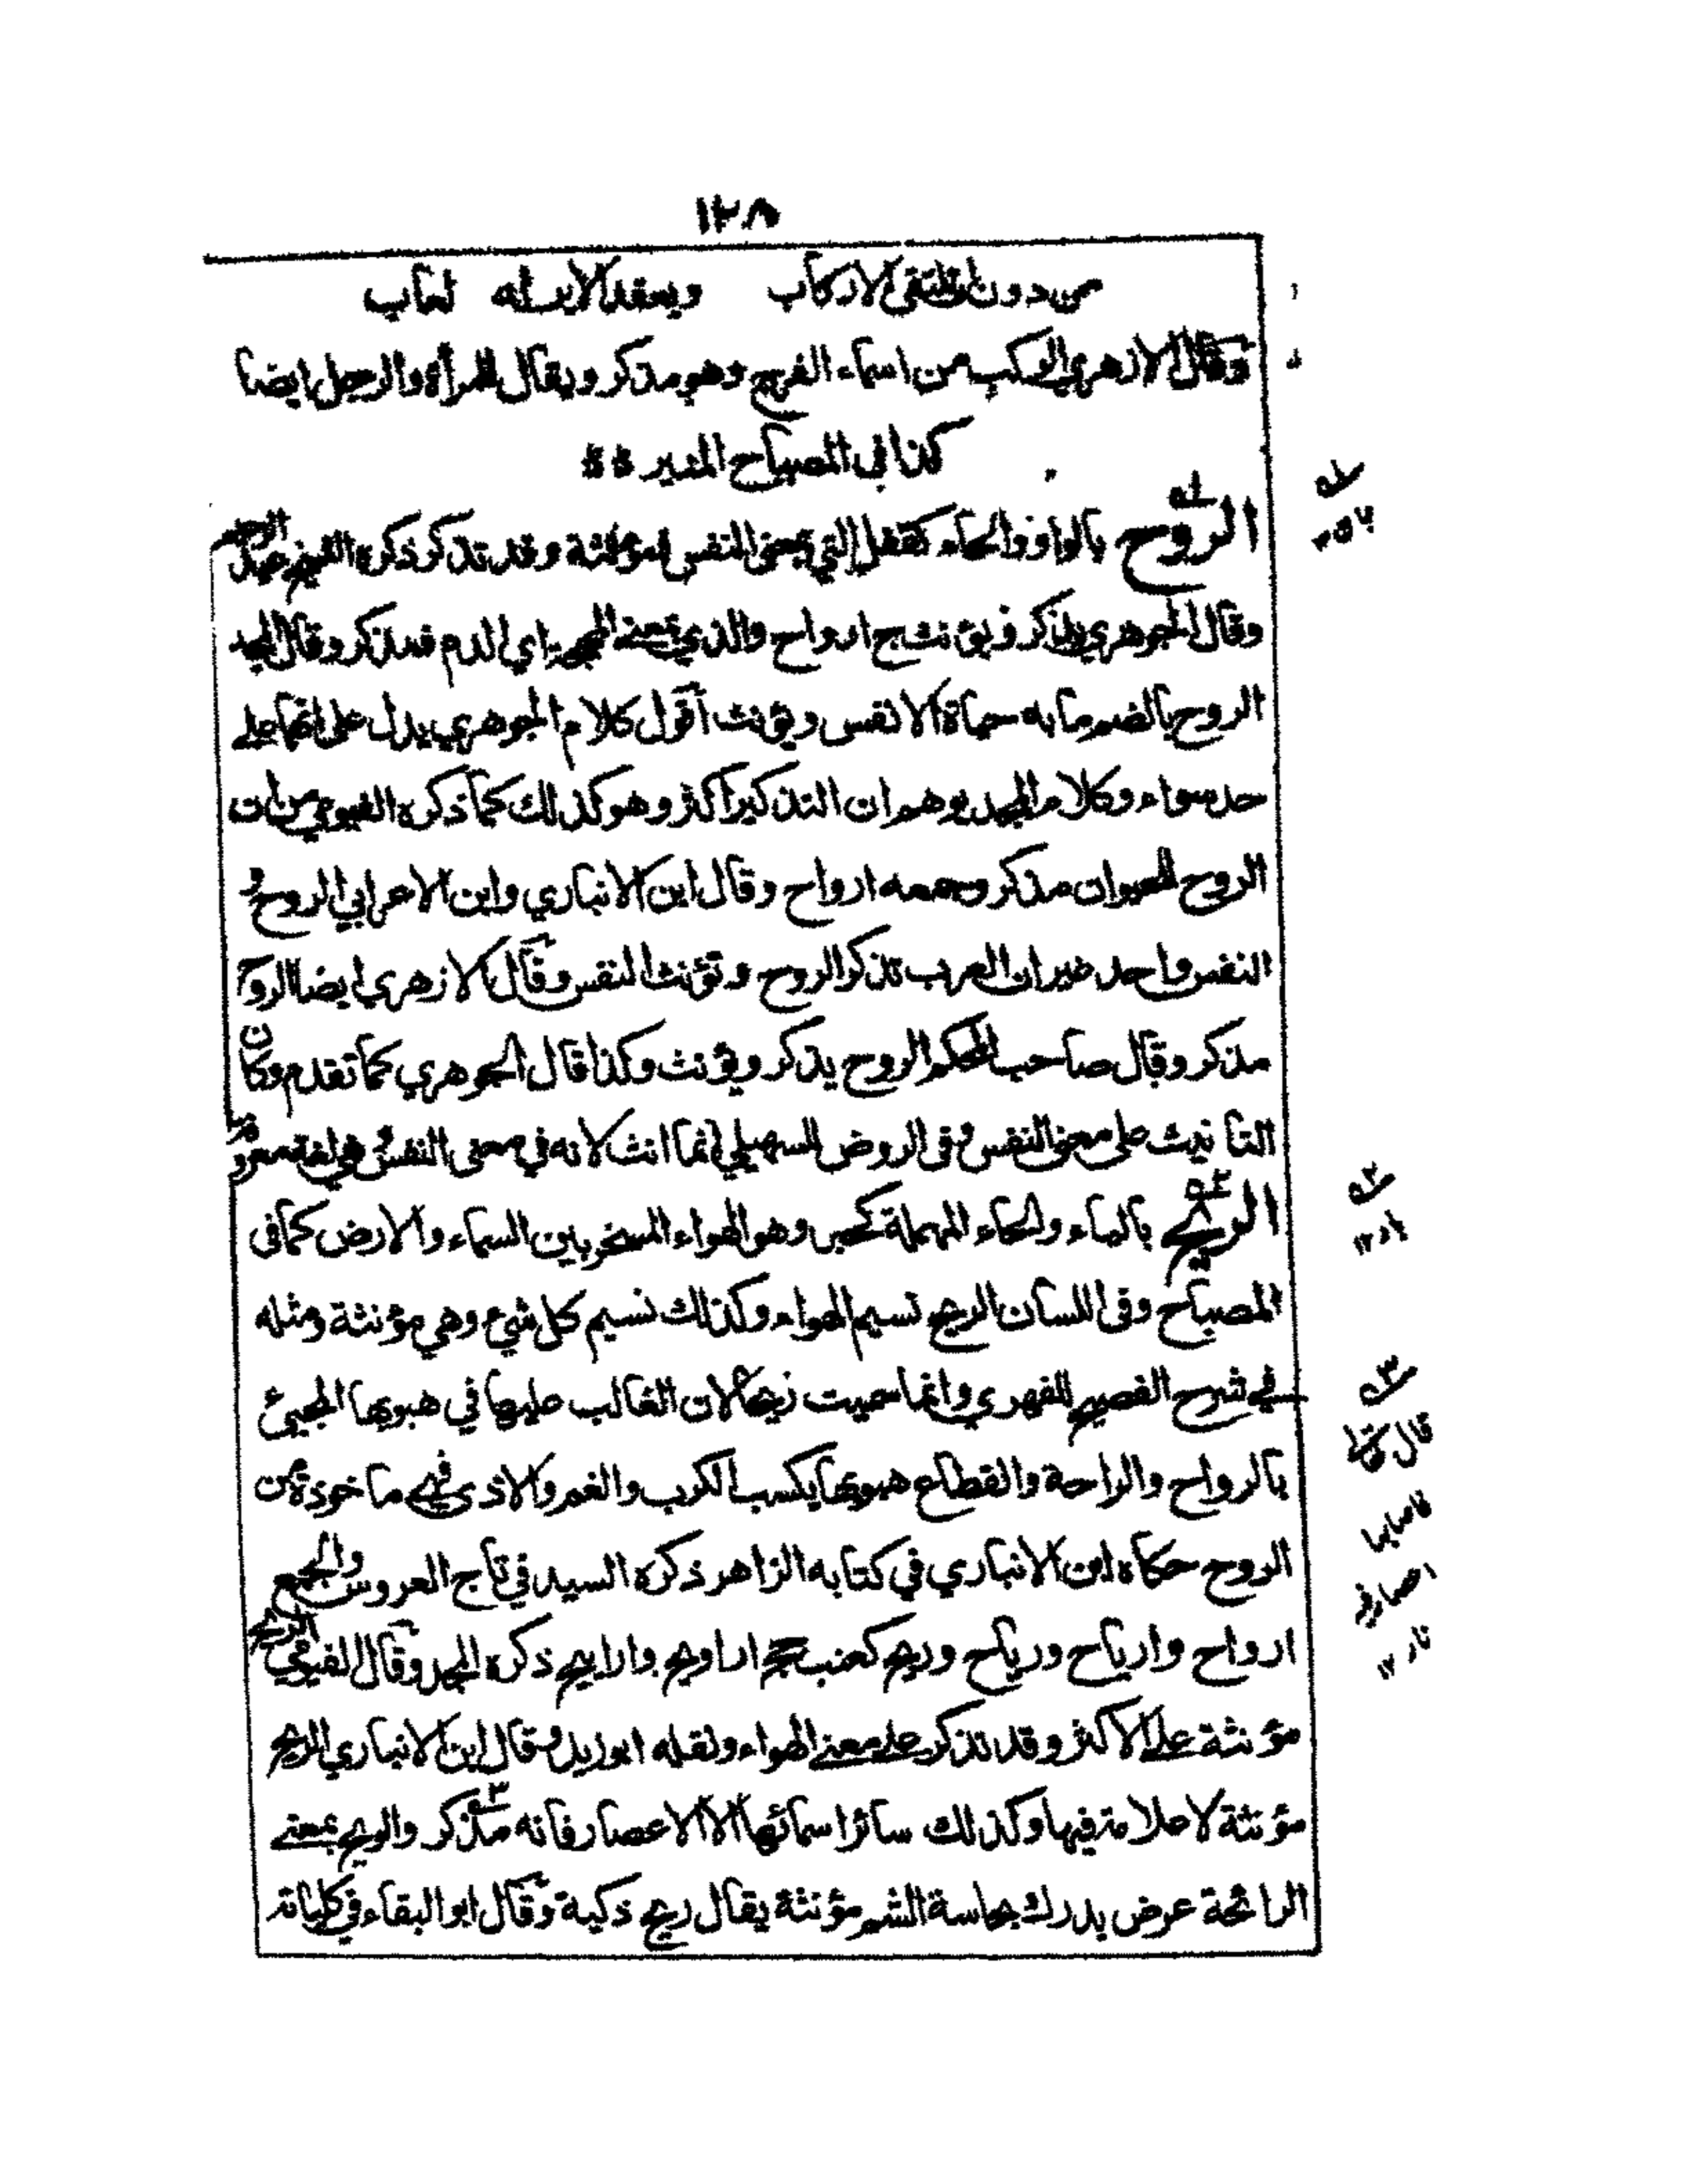 ١٢٨
من دون ان تلتقي الاركاب ويعقد الاير له لعاب
وقال الازهري الركب من اسماء الفرج وهو مذكر ويقال للمرأة والرجل ايضا
كذا في المصباح المنير
الروح بالواو والحاء كقفل التي بمعنى النفس مؤنثة وقد تذكر ذكره الشيخ عبد الرحيم
وقال الجوهري يذكر ويؤنث ج ارواح والذي بمعنى المهجة اي الدم فمذكر وقال المجد
الروح بالضم ما به حياة الانفس ويؤنث اقول كلام الجوهري يدل على انهما على
حد سواء وكلام المجد يوهم ان التذكير اكثر وهو كذلك كما ذكره الفيومي من ان
الروح للحيوان مذكر وجمعه ارواح وقال ابن الانباري وابن الاعرابي الروح و
النفس واحد غير ان العرب تذكر الروح وتؤنث النفس وقال الازهري ايضا الروح
مذكر وقال صاحب المحكم الروح يذكر ويؤنث وكذا قال الجوهري كما تقدم وكان
التانيث على معنى النفس وفى الروض للسهيلي انما انث لانه في معنى النفس وهي لغة معروفة
الريح بالياء والحاء المهملة كحبر وهو الهواء المسخر بين السماء والارض كما فى
المصباح وفى اللسان الريح نسيم الهواء وكذلك نسيم كل شيء وهي مؤنثة ومثله
في شرح الفصيح للفهري وانما سميت ريحا لان الغالب عليها في هبوبها المجيئ
بالرواح والراحة وانقطاع هبوبها يكسب الكرب والغم والاذى فهي ماخوذة من
الروح حكاه ابن الانباري في كتابه الزاهر ذكره السيد في تاج العروس والجمع
ارواح وارياح ورياح وريح كعنب جج اراويح واراييح ذكره المجد وقال الفيومي الريح
مؤنثة على الاكثر وقد تذكر على معنى الهواء ونقله ابو زيد وقال ابن الانباري الريح
مؤنثة لا علامة فيها وكذلك سائر اسمائها الا الاعصار فانه مذكر والريح بمعنى
الرائحة عرض يدرك بحاسة الشم مؤنثة يقال ريح ذكية وقال ابو البقاء في كلياته